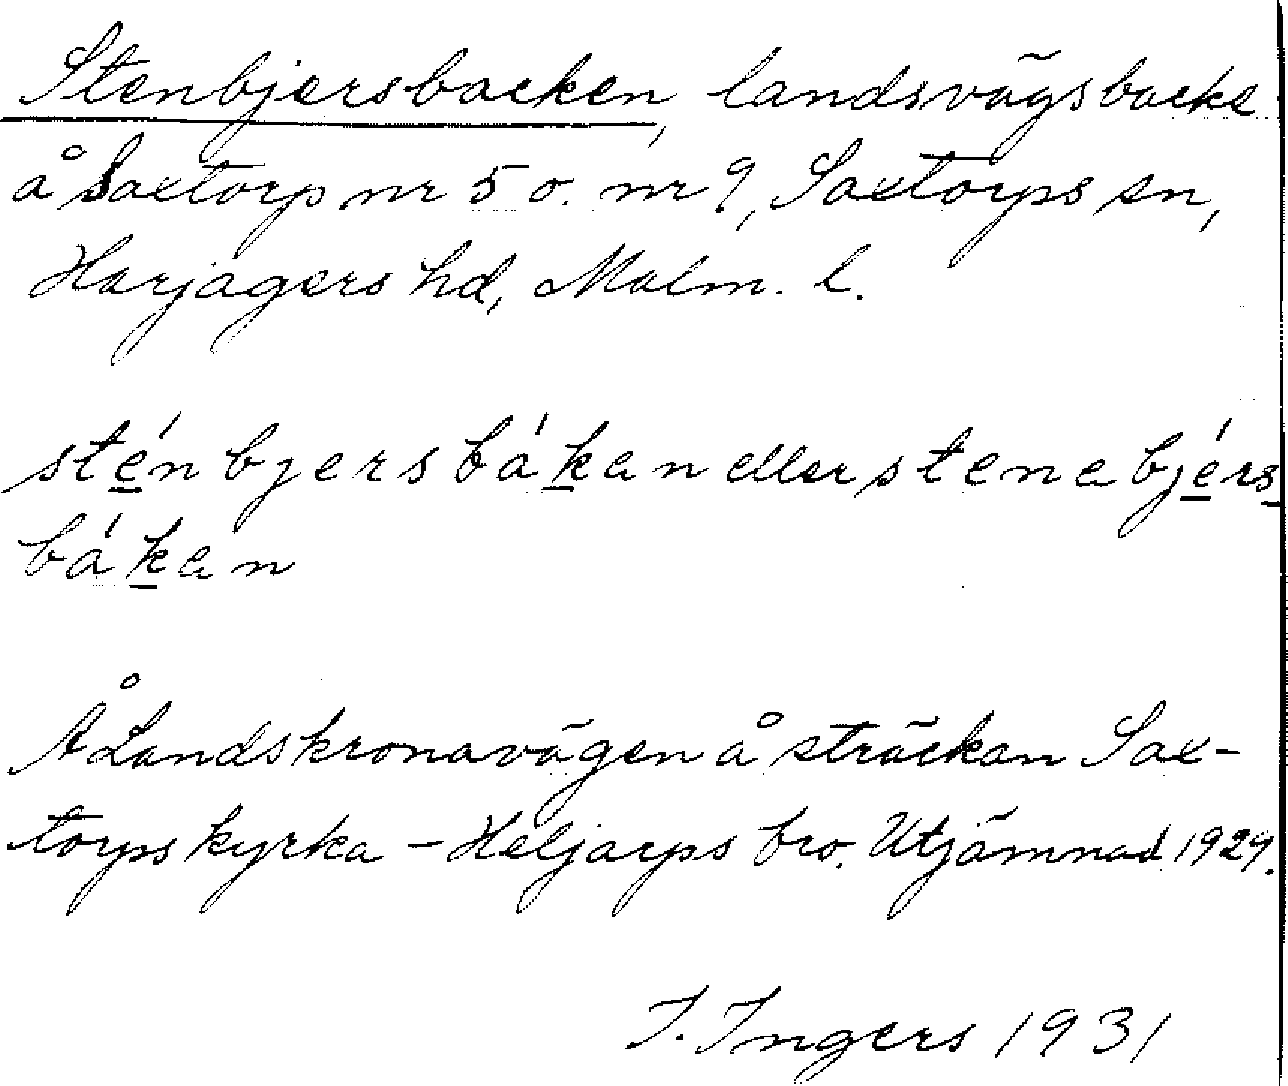 Stenbjersbacken, landsvägsbacke
å Saxtorp nr 5 o. nr 9, Saxtorps sn,
Harjagers hd, Malm. l.
sténbjersbákan eller stenabjérs
bákan
Å Landskronavägen å sträckan Sax-
torps kyrka - Heljarps bro. Utjämnad 1929.
I. Ingers 1931